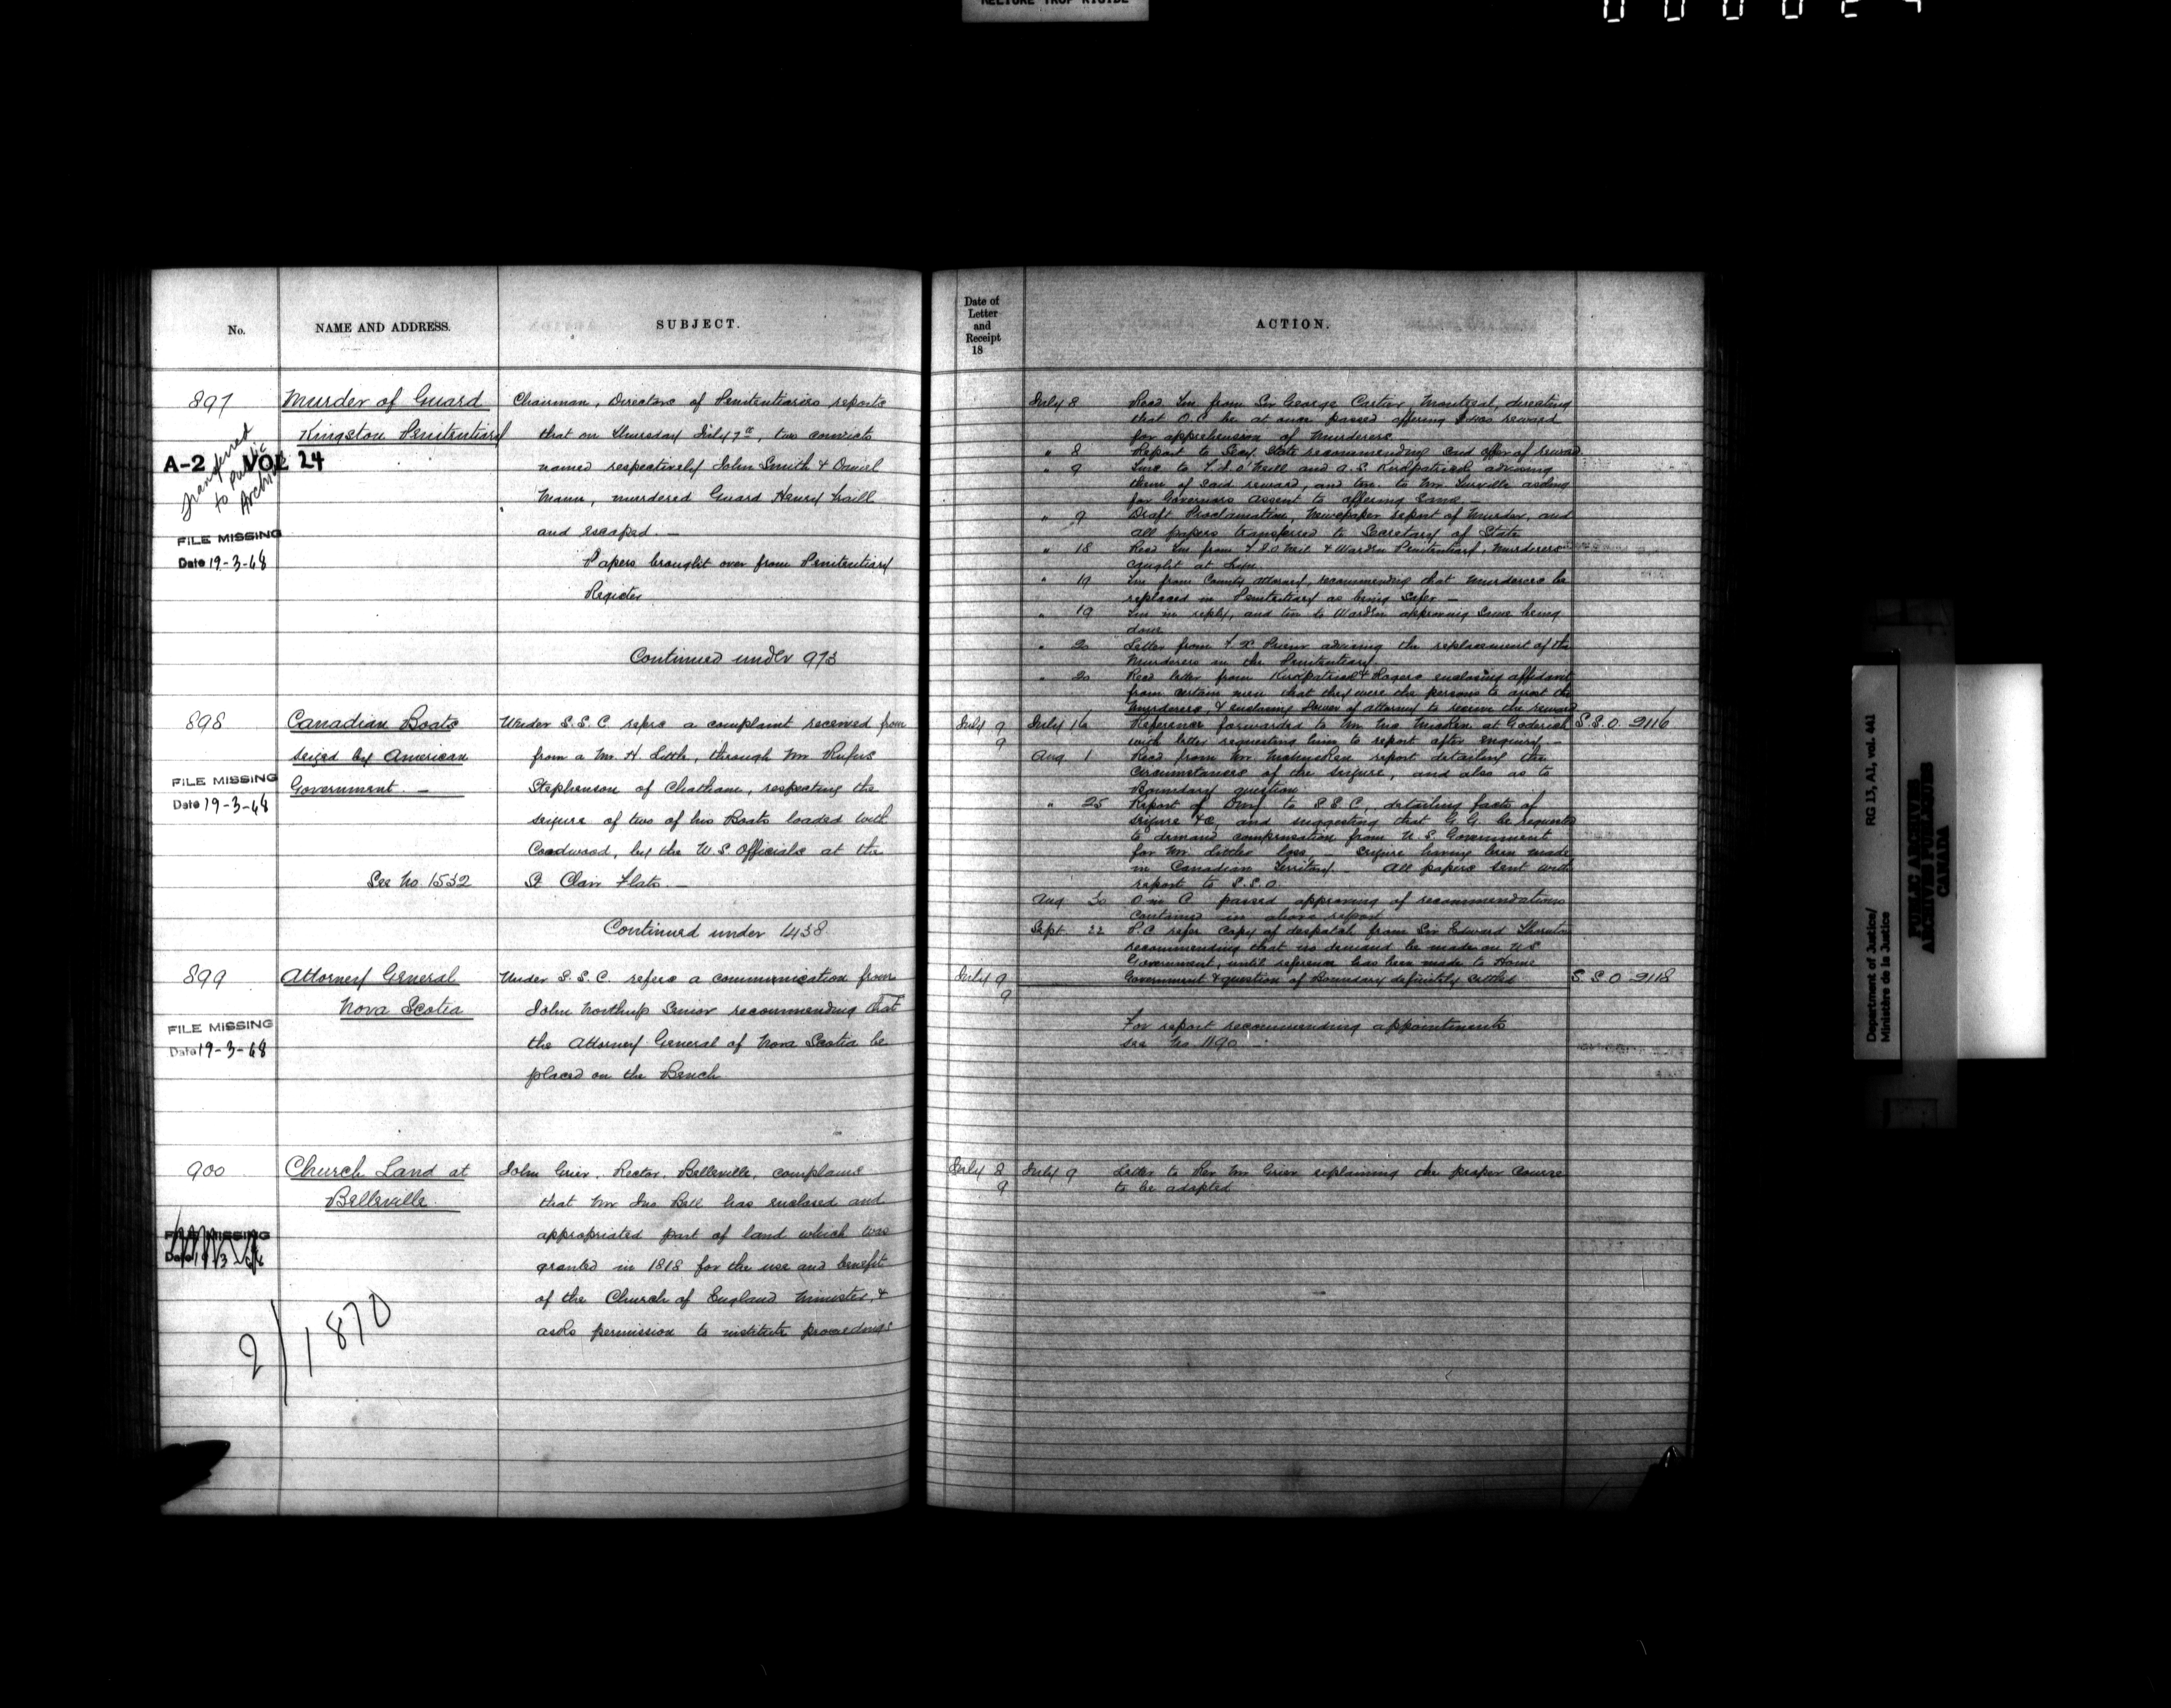 No.
NAME AND ADDRESS.
SUBJECT.
897
Murder of Guard
Kingston Penitentiary
A-2 VOL 24
Transferred
to Public
Archives
FILE MISSING
Date 19-3-68
Chairman, Directors of Penitentiaries reports
that on Thursday July 7th, two convicts
named respectively John Smith & Daniel
Mann, murdered Guard Henry Traill
and escaped. —
Papers brought over from Penitentiary
Register
Continued under 973
898
Canadian Boats
seized by American
Government. —
FILE MISSING
Date 19-3-68
See No. 1532
Under S.S.C. refers a complaint received from
from a Mr. H. Little, through Mr Rufus
Stephenson of Chatham, respecting the
seizure of two of his Boats loaded with
Cordwood, by the U.S. Officials at the
St Clair Flats. —
Continued under 1438
899
Attorney General
Nova Scotia
FILE MISSING
Date 19-3-68
Under S.S.C. refers a communication from
John Northup Senior recommending that
the Attorney General of Nova Scotia be
placed on the Bench
900
Church Land at
Belleville
FILE MISSING
Date 19-3-68
2/1870
John Grier, Rector, Belleville, complains
that Mr Jno Bell has enclosed and
appropriated part of land which was
granted in 1818 for the use and benefit
of the Church of England Minister, &
asks permission to institute proceedings
Date of
Letter
and
Receipt
18
ACTION.
July 8 Recd Tm from Sir George Cartier, Montreal, directing
that O.C. be at once passed offering reward
for apprehension of Murderers.
" 8 Report to Secy State recommending said offer of reward
" 9 to O'Neill and A.S. Kirkpatrick advising
them of said reward, and to Mr Turville asking
for Governors Assent to offering same —
" 9 Draft Proclamation, Newspaper report of Murder, and
all papers transferred to Secretary of State
" 18 Recd Tm from & Warden Penitentiary, Murderers
caught at
" 19 Tm from County Attorney, recommending that Murderers be
replaced in Penitentiary as being safer —
" 19 Tm in reply, and tm to Warden approving same being
done
" 20 Letter from F. X. Prieur advising the replacement of the
Murderers in the Penitentiary
" 20 Recd letter from Kirkpatrick & Rogers enclosing affidavit
from certain men that they were the persons to arrest the
Murderers, & enclosing Power of attorney to receive the reward
July 9
9
July 16 Reference forwarded to Mr at Goderich
with letter requesting him to report after enquiry —
S.S.O. 2116
Aug 1 Recd from Mr report detailing the
circumstances of the seizure, and also as to
Boundary question
" 25 Report of to S.S.C. detailing facts of
seizure &c, and suggesting that G.G. be requested
to demand compensation from U.S. Government
for Mr Littles loss, seizure having been made
in Canadian Territory. — All papers sent with
report to S.S.O.
Aug 30 O in C passed approving of recommendations
contained in above report
Sept 22 P.C. refer copy of despatch from Sir Edward Thornton
recommending that no demand be made on U.S.
Government, until reference has been made to Home
Government & question of Boundary definitely settled
July 9
9
S.S.O 2118
For report recommending appointments
see No 1190
July 8
9
July 9 Letter to Rev Mr Grier explaining the proper course
to be adopted
RG 13, A1, vol. 441
Department of Justice/
Ministère de la Justice
PUBLIC ARCHIVES
ARCHIVES PUBLIQUES
CANADA